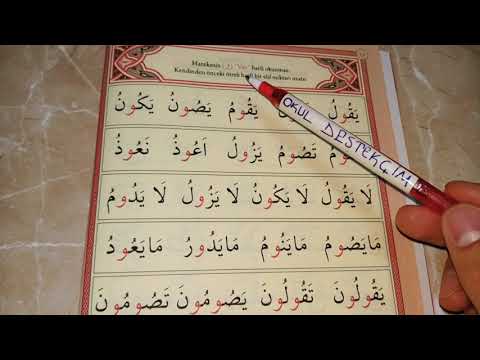 Harekesiz (و) "Vav" harfi okunmaz.
Kendinden önceki ötreli harfi bir elif miktarı uzatır.
يَقُولُ يَقُومُ يَصُونُ يَكُونُ
تَصُومُ يَزُولُ اَعُوذُ نَعُوذُ
لَا يَقُولُ لَا يَكُونُ لَا يَزُولُ لَا يَدُومُ
مَايَصُومُ مَايَنُومُ مَايَدُورُ مَايَعُودُ
يَقُولُونَ تَقُولُونَ يَصُومُونَ تَصُومُونَ
OKUL DESTEKÇİM